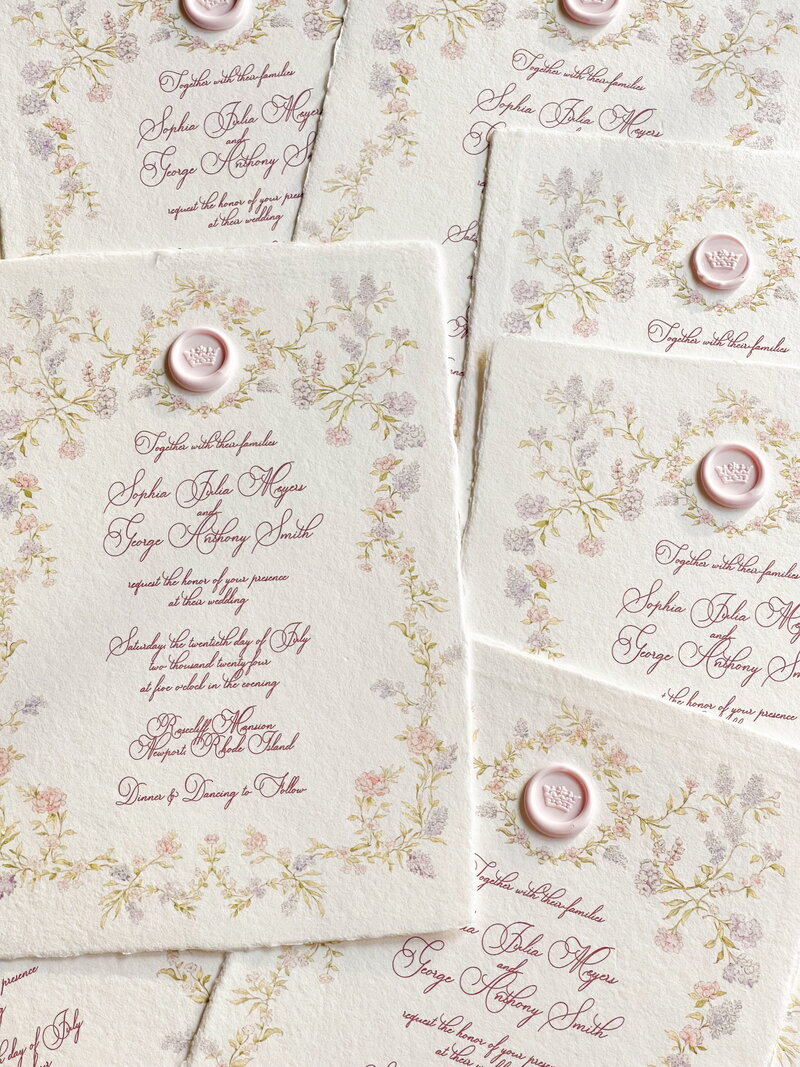 Together with their families
Sophia Julia Meyers
and
George Anthony
request the honor of your
at their wedding
Together with their families
Sophia Julia Meyers
Together with their families
Together with their families
Sophia Julia
and
George Anthony
the honor of your presence
Together with their families
Sophia Julia Meyers
and
George Anthony Smith
request the honor of your presence
at their wedding
Saturday, the twentieth day of July
two thousand twenty-four
at five o'clock in the evening
Rosecliff Mansion
Newport, Rhode Island
Dinner & Dancing to Follow
Together with their families
Julia Meyers
and
George Anthony Smith
request the honor of your
at their wedding
presence
day of July